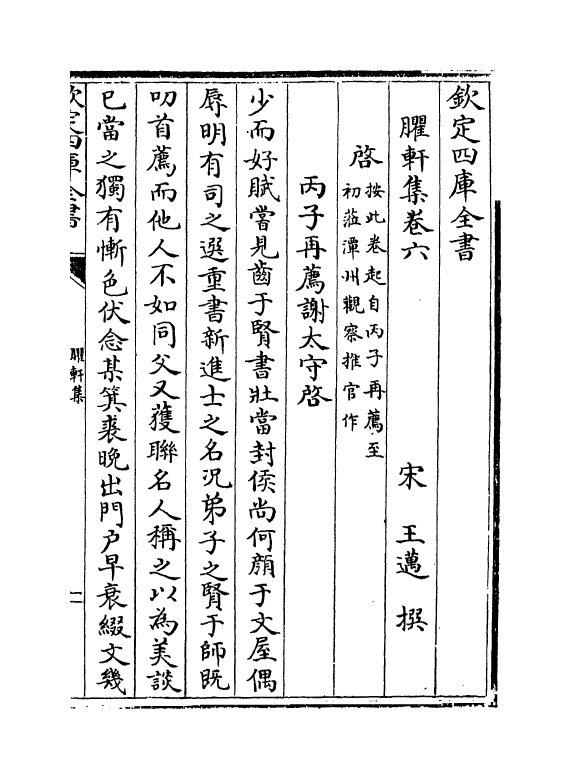 欽定四庫全書
臞軒集卷六
宋 王邁 撰
啓
按此卷起自丙子再薦至
初蒞潭州觀察推官作
丙子再薦謝太守啓
少而好賦嘗見齒于賢書壯當封侯尚何顔于文屋偶
辱明有司之選重書新進士之名況弟子之賢于師既
叨首薦而他人不如同父又獲聨名人稱之以為美談
已當之獨有慚色伏念某箕裘晚出門户早衰綴文幾
欽定四庫全書
臞軒集
一